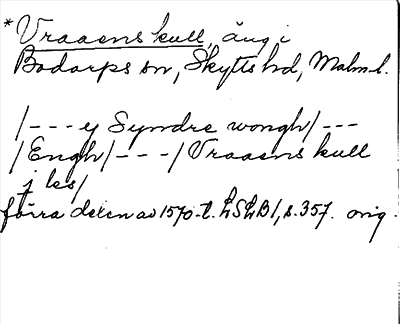 *Vraaens kull, äng i
Bodarps sn, Skytts hd, Malm.l.
/---y Syndre wongh/---
/Engh/---/Vraaens kull
j les/
förra delen av 1570-t. LSLB1, s.357. orig.